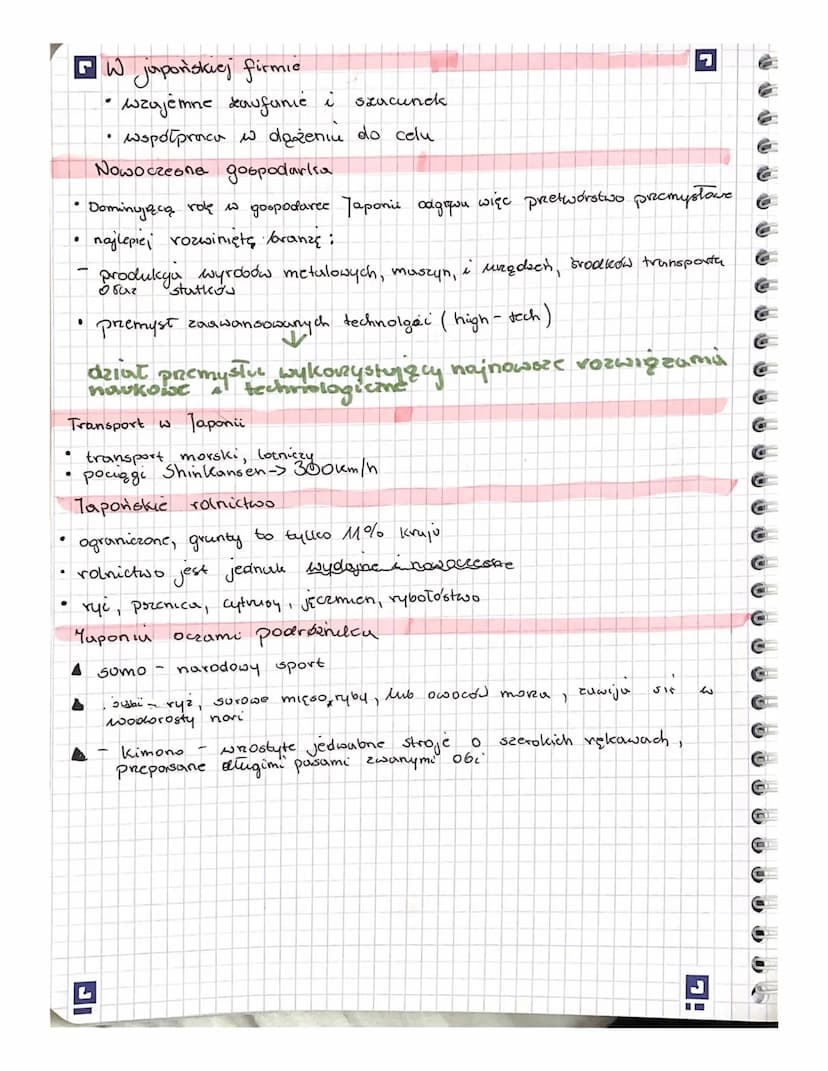 W japońskiej firmie
• wzajemne zaufanie i szacunek
• współpraca w dążeniu do celu
Nowoczesna gospodarka
• Dominującą rolę w gospodarce Japonii odgrywa więc przetwórstwo przemysłowe
• najlepiej rozwinięte branże:
– produkcja wyrobów metalowych, maszyn, i urządzeń, środków transportu
oraz statków
• przemysł zaawansowanych technolgii (high-tech)
↓
dział przemysłu wykorzystujący najnowsze rozwiązania
naukowe i technologiczne
Transport w Japonii
• transport morski, lotniczy
• pociągi Shinkansen -> 300km/h
Japońskie rolnictwo
• ograniczone, grunty to tylko 11% kraju
• rolnictwo jest jednak wydajne i nowoczesne
• ryż, pszenica, cytrusy, jęczmien, rybołóstwo
Japonia oczami podróżnika
▲ sumo – narodowy sport
▲ sushi – ryż, surowe mięso, ryby, lub owoców morza, zawija się w
woodorosty nori
▲ – Kimono – wzorzyste jedwabne stroje o szerokich rękawach,
przepasane długimi pasami zwanymi obi